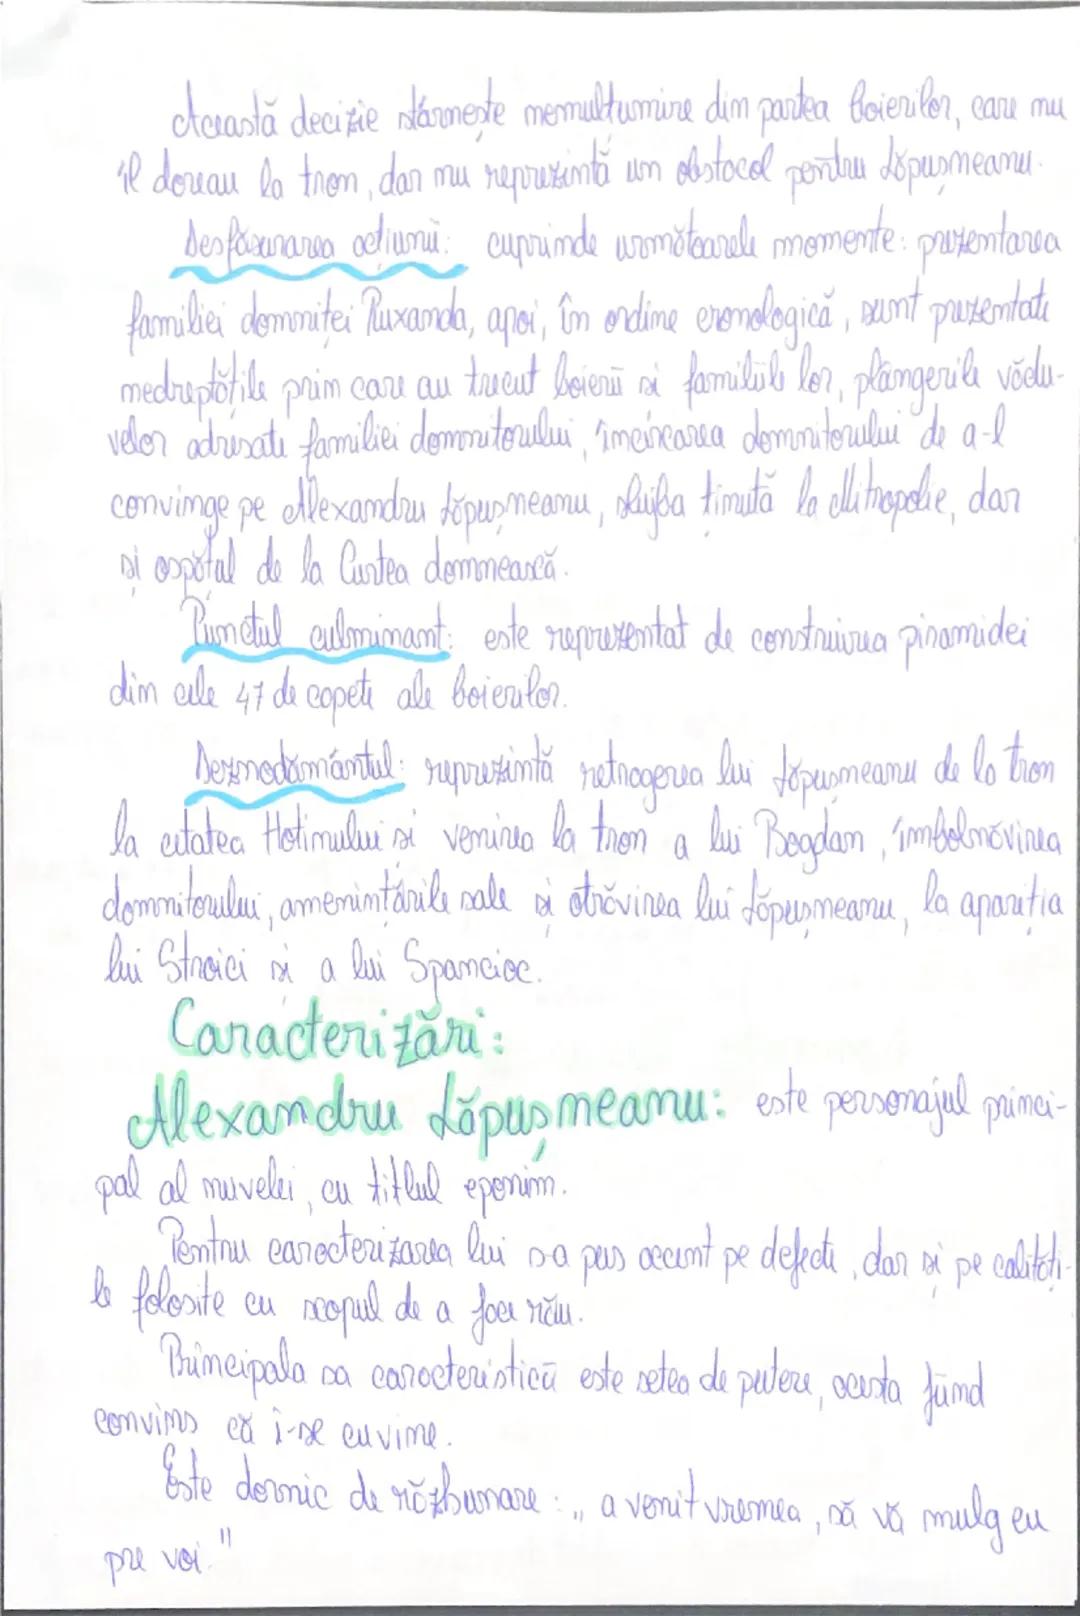 Această decizie stârnește nemulțumire din partea boierilor, care nu
îl doreau la tron, dar nu reprezintă un obstacol pentru Lăpușneanu.
Desfășurarea acțiunii: cuprinde următoarele momente: prezentarea
familiei domniței Ruxanda, apoi, în ordine cronologică, sunt prezentate
nedreptățile prin care au trecut boierii și familiile lor, plângerile vădu-
velor adresate familiei domnitorului, încercarea domnitorului de a-l
convinge pe Alexandru Lăpușneanu, slujba ținută la Mitropolie, dar
și ospătul de la Curtea domnească.
Punctul culminant: este reprezentat de construirea piramidei
din cele 47 de capete ale boierilor.
Deznodământul: reprezintă retragerea lui Lăpușneanu de la tron
la cetatea Hotinului și venirea la tron a lui Bogdan, îmbolnăvirea
domnitorului, amenințările sale și otrăvirea lui Lăpușneanu, la apariția
lui Stroici și a lui Spancioc.
Caracterizări:
Alexandru Lăpușneanu: este personajul princi-
pal al nuvelei, cu titlul eponim.
Pentru caracterizarea lui s-a pus accent pe defecte, dar și pe calități-
le folosite cu scopul de a face rău.
Principala sa caracteristică este setea de putere, acesta fiind
convins că i-se cuvine.
Este dornic de răzbunare: „a venit vremea, să vă mulg eu
pre voi."